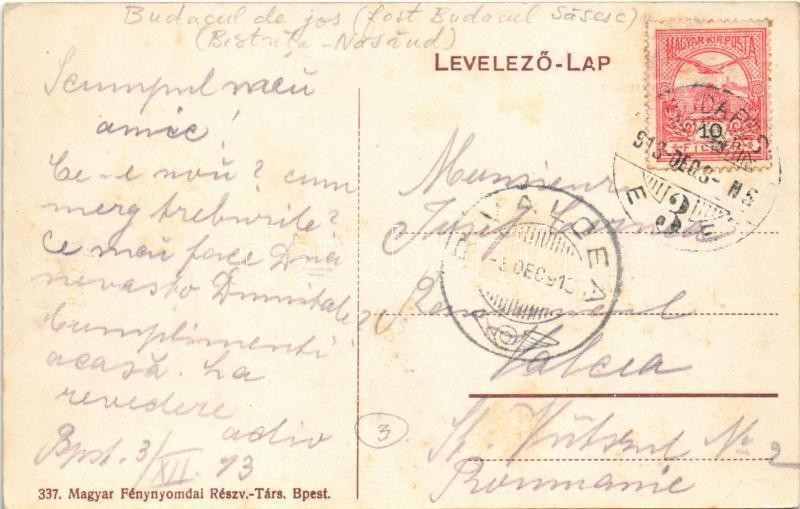 Budacul de jos (fost Budacul Săsesc)
(Bistrița-Năsăud)
LEVELEZŐ-LAP
MAGYAR KIR. POSTA
10
913 DEC 3- N5
E
3
E
R. VALCEA
DEC 913
Scumpul meŭ
amic!
Ce-e noŭ? cum
merg treburile?
Ce mai face D-na
nevasta Dumitale?
Complimenti
acasă. La
revedere
adio
Bpst. 3/XII. 13
Monsieur
Iosif
Valcea
3
No 2
Roumanie
337. Magyar Fénynyomdai Részv.-Társ. Bpest.